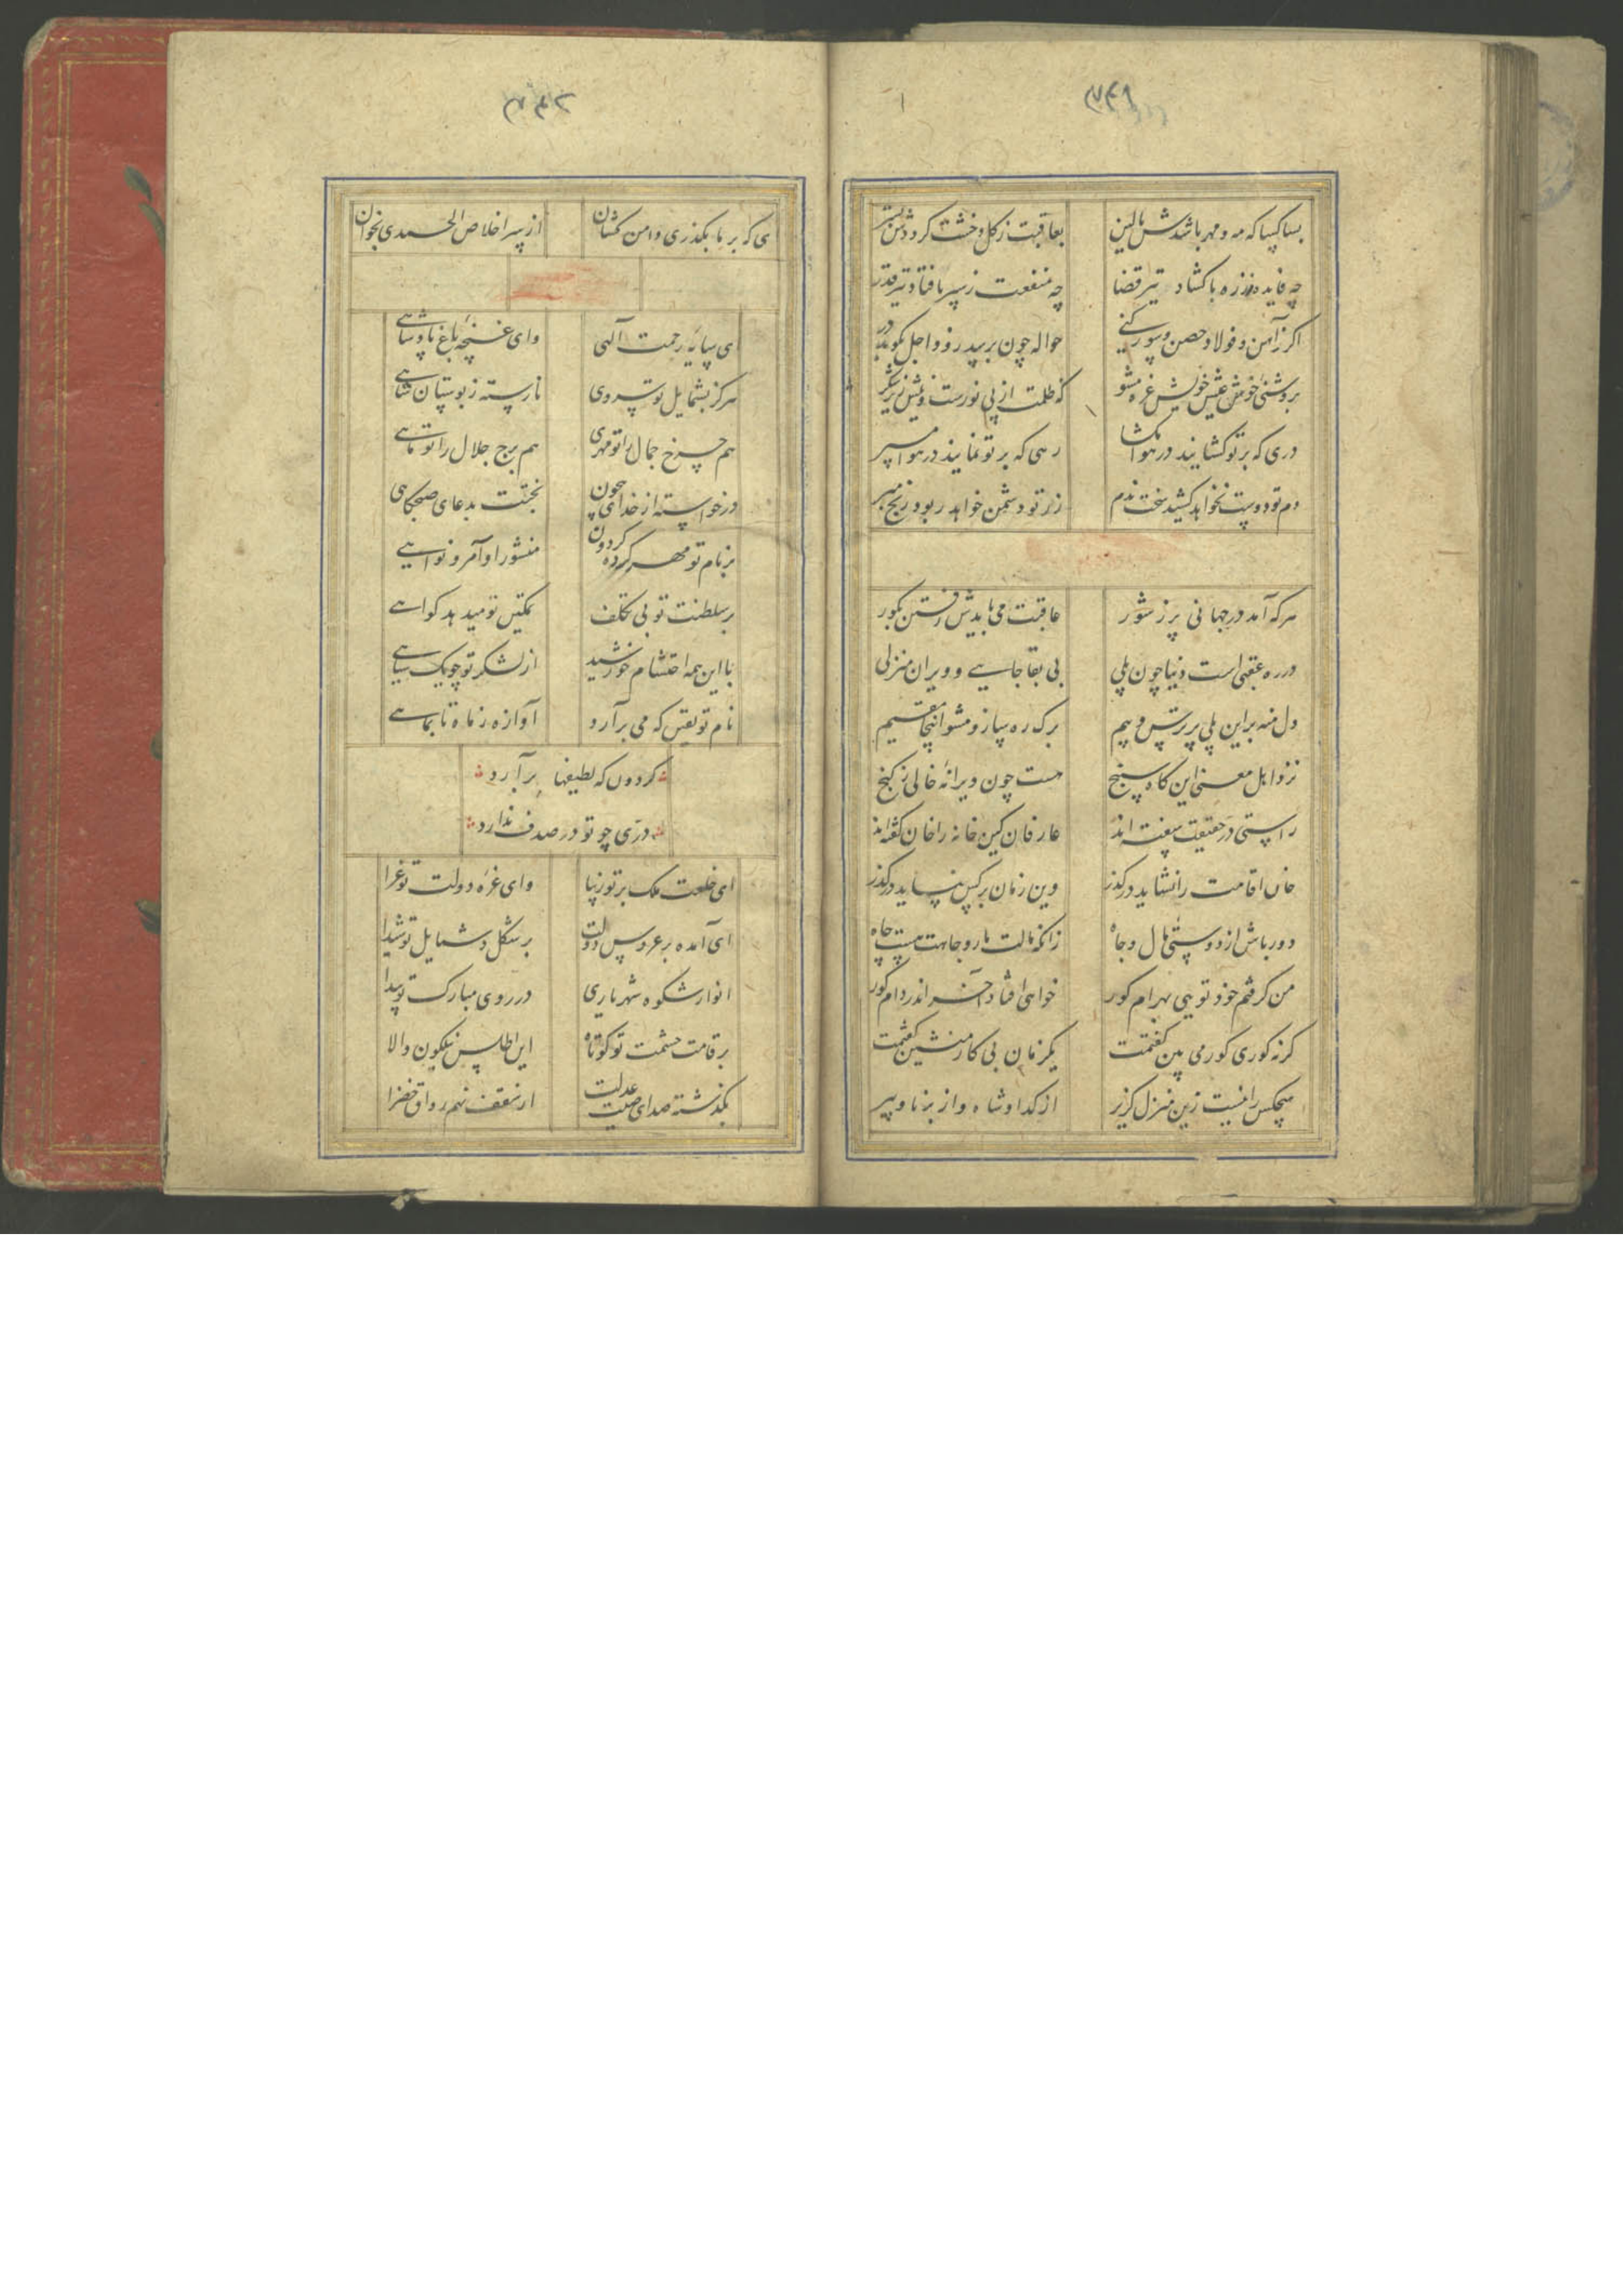 ۳۴۱
بسا کسا که مه و مهر باشدش بالین بعاقبت ز کل و خشت کرددش بستر
چه فایده ز زره با کشاد تیر قضا چه منفعت ز سپر با فتاد تیر قدر
اکر ز آهن و فولاد حصن و سور کنی حواله چون برسد زود اجل بکوبد در
بروشنی خوشی عیش خویش غره مشو که ظلمت از پی نورست و نیش زیر شکر
دری که بر تو کشایند در هوا مکشا رهی که بر تو نمایند در هوا مسپر
دم تو دوست نخواهد کشید سخت مدم زر تو دشمن خواهد ربود رنج مبر
هر که آمد در جهانی پر ز شور عاقبت می بایدش رفتن بکور
در ره عقبی است دنیا چون پلی بی بقا جایی و ویران منزلی
دل منه بر این پلی پر ترس و بیم برک ره بساز و مشو اینجا مقیم
نزد اهل معنی این کاه سپنج هست چون ویرانهٔ خالی ز کنج
راستی در حقیقت سفته اند عارفان کین خانه را خان کفته اند
خان اقامت را نشاید در کذر وین زمان بر کس نپاید در کذر
دور باش از دوستی مال و جاه زانکه مالت مار و جاهت هست چاه
من کرفتم خود تویی بهرام کور خواهی افتاد آخر اندر دام کور
کر نه کوری کور می بین کفتمت یکزمان بی کار منشین کفتمت
هیچکس را نیست زین منزل کزیر از کدا و شاه و از برنا و پیر
۳۴۲
ی که بر ما بکذری دامن کشان از سر اخلاص الحمدی بخوان
ی سایهٔ رحمت آلهی وای غنچهٔ باغ پادشاهی
هرکز بشمایل تو سروی نارسته ز بوستان شاهی
هم چرخ جمال را تو مهری هم برج جلال را تو ماهی
درخواسته از خدای بیچون بختت بدعای صبحکاهی
بر نام تو مهر کرده کردون منشور اوامر و نواهی
بر سلطنت تو بی تکلف تمکین تو میدهد کواهی
با این همه احتشام خورشید از لشکر تو چو یک سپاهی
نام تو یقین که می برآرد آوازه ز ماه تا بماهی
کردون که لطیفها برآرد
درّی چو تو در صدف ندارد
ای خلعت ملک بر تو زیبا وای غرهٔ دولت تو غرا
ای آمده بر عروس دولت بر شکل و شمایل تو شیدا
انوار شکوه شهریاری در روی مبارک تو پیدا
بر قامت حشمت تو کوتاه این اطلس نیلکون والا
بکذشته صدای صیت عدلت از سقف نهم رواق خضرا